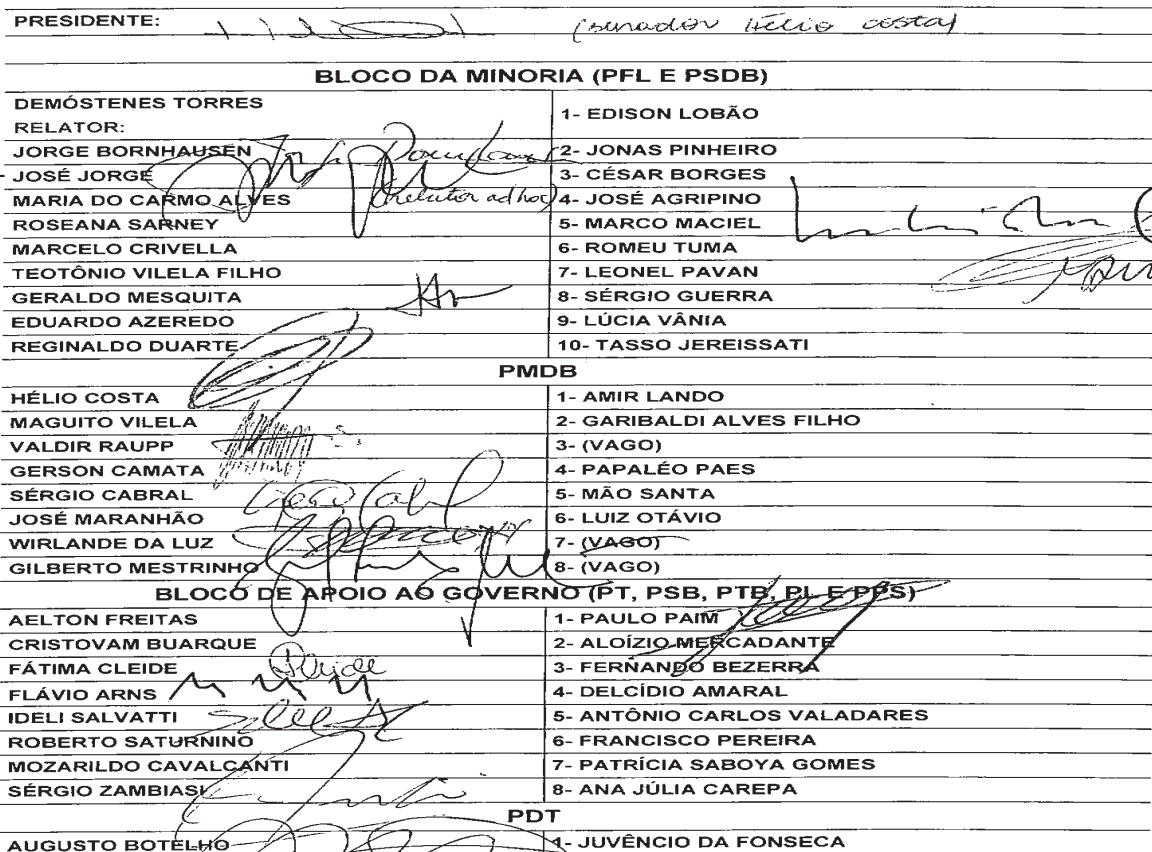 PRESIDENTE: (senador Hélio Costa)
BLOCO DA MINORIA (PFL E PSDB)
DEMÓSTENES TORRES
RELATOR:
1- EDISON LOBÃO
JORGE BORNHAUSEN 2- JONAS PINHEIRO
JOSÉ JORGE 3- CÉSAR BORGES
MARIA DO CARMO ALVES (relator ad hoc) 4- JOSÉ AGRIPINO
ROSEANA SARNEY 5- MARCO MACIEL
MARCELO CRIVELLA 6- ROMEU TUMA
TEOTÔNIO VILELA FILHO 7- LEONEL PAVAN
GERALDO MESQUITA 8- SÉRGIO GUERRA
EDUARDO AZEREDO 9- LÚCIA VÂNIA
REGINALDO DUARTE 10- TASSO JEREISSATI
PMDB
HÉLIO COSTA 1- AMIR LANDO
MAGUITO VILELA 2- GARIBALDI ALVES FILHO
VALDIR RAUPP 3- (VAGO)
GERSON CAMATA 4- PAPALÉO PAES
SÉRGIO CABRAL 5- MÃO SANTA
JOSÉ MARANHÃO 6- LUIZ OTÁVIO
WIRLANDE DA LUZ 7- (VAGO)
GILBERTO MESTRINHO 8- (VAGO)
BLOCO DE APOIO AO GOVERNO (PT, PSB, PTB, PL E PPS)
AELTON FREITAS 1- PAULO PAIM
CRISTOVAM BUARQUE 2- ALOÍZIO MERCADANTE
FÁTIMA CLEIDE 3- FERNANDO BEZERRA
FLÁVIO ARNS 4- DELCÍDIO AMARAL
IDELI SALVATTI 5- ANTÔNIO CARLOS VALADARES
ROBERTO SATURNINO 6- FRANCISCO PEREIRA
MOZARILDO CAVALCANTI 7- PATRÍCIA SABOYA GOMES
SÉRGIO ZAMBIASI 8- ANA JÚLIA CAREPA
PDT
AUGUSTO BOTELHO 1- JUVÊNCIO DA FONSECA